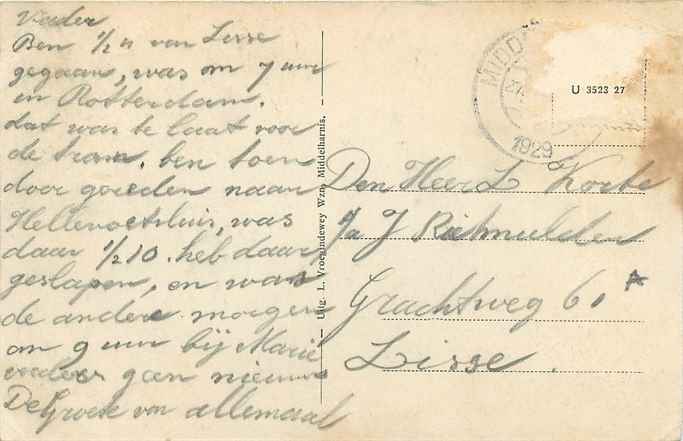 Vader
Ben 1/2 11 van Lisse
gegaan, was om 7 uur
in Rotterdam.
dat was te laat voor
de tram. ben toen
door gereden naar
Hellevoetsluis, was
daar 1/2 10. heb daar
geslapen, en was
de andere morgen
om 9 uur bij Marie
verders geen nieuws
De Groete van allemaal
Uitg. L. Vroegindewey Wzn, Middelharnis.
MIDD
1929
U 3523 27
Den Heer L Korbe
p/a J Rietmulder
Grachtweg 61 A
Lisse.